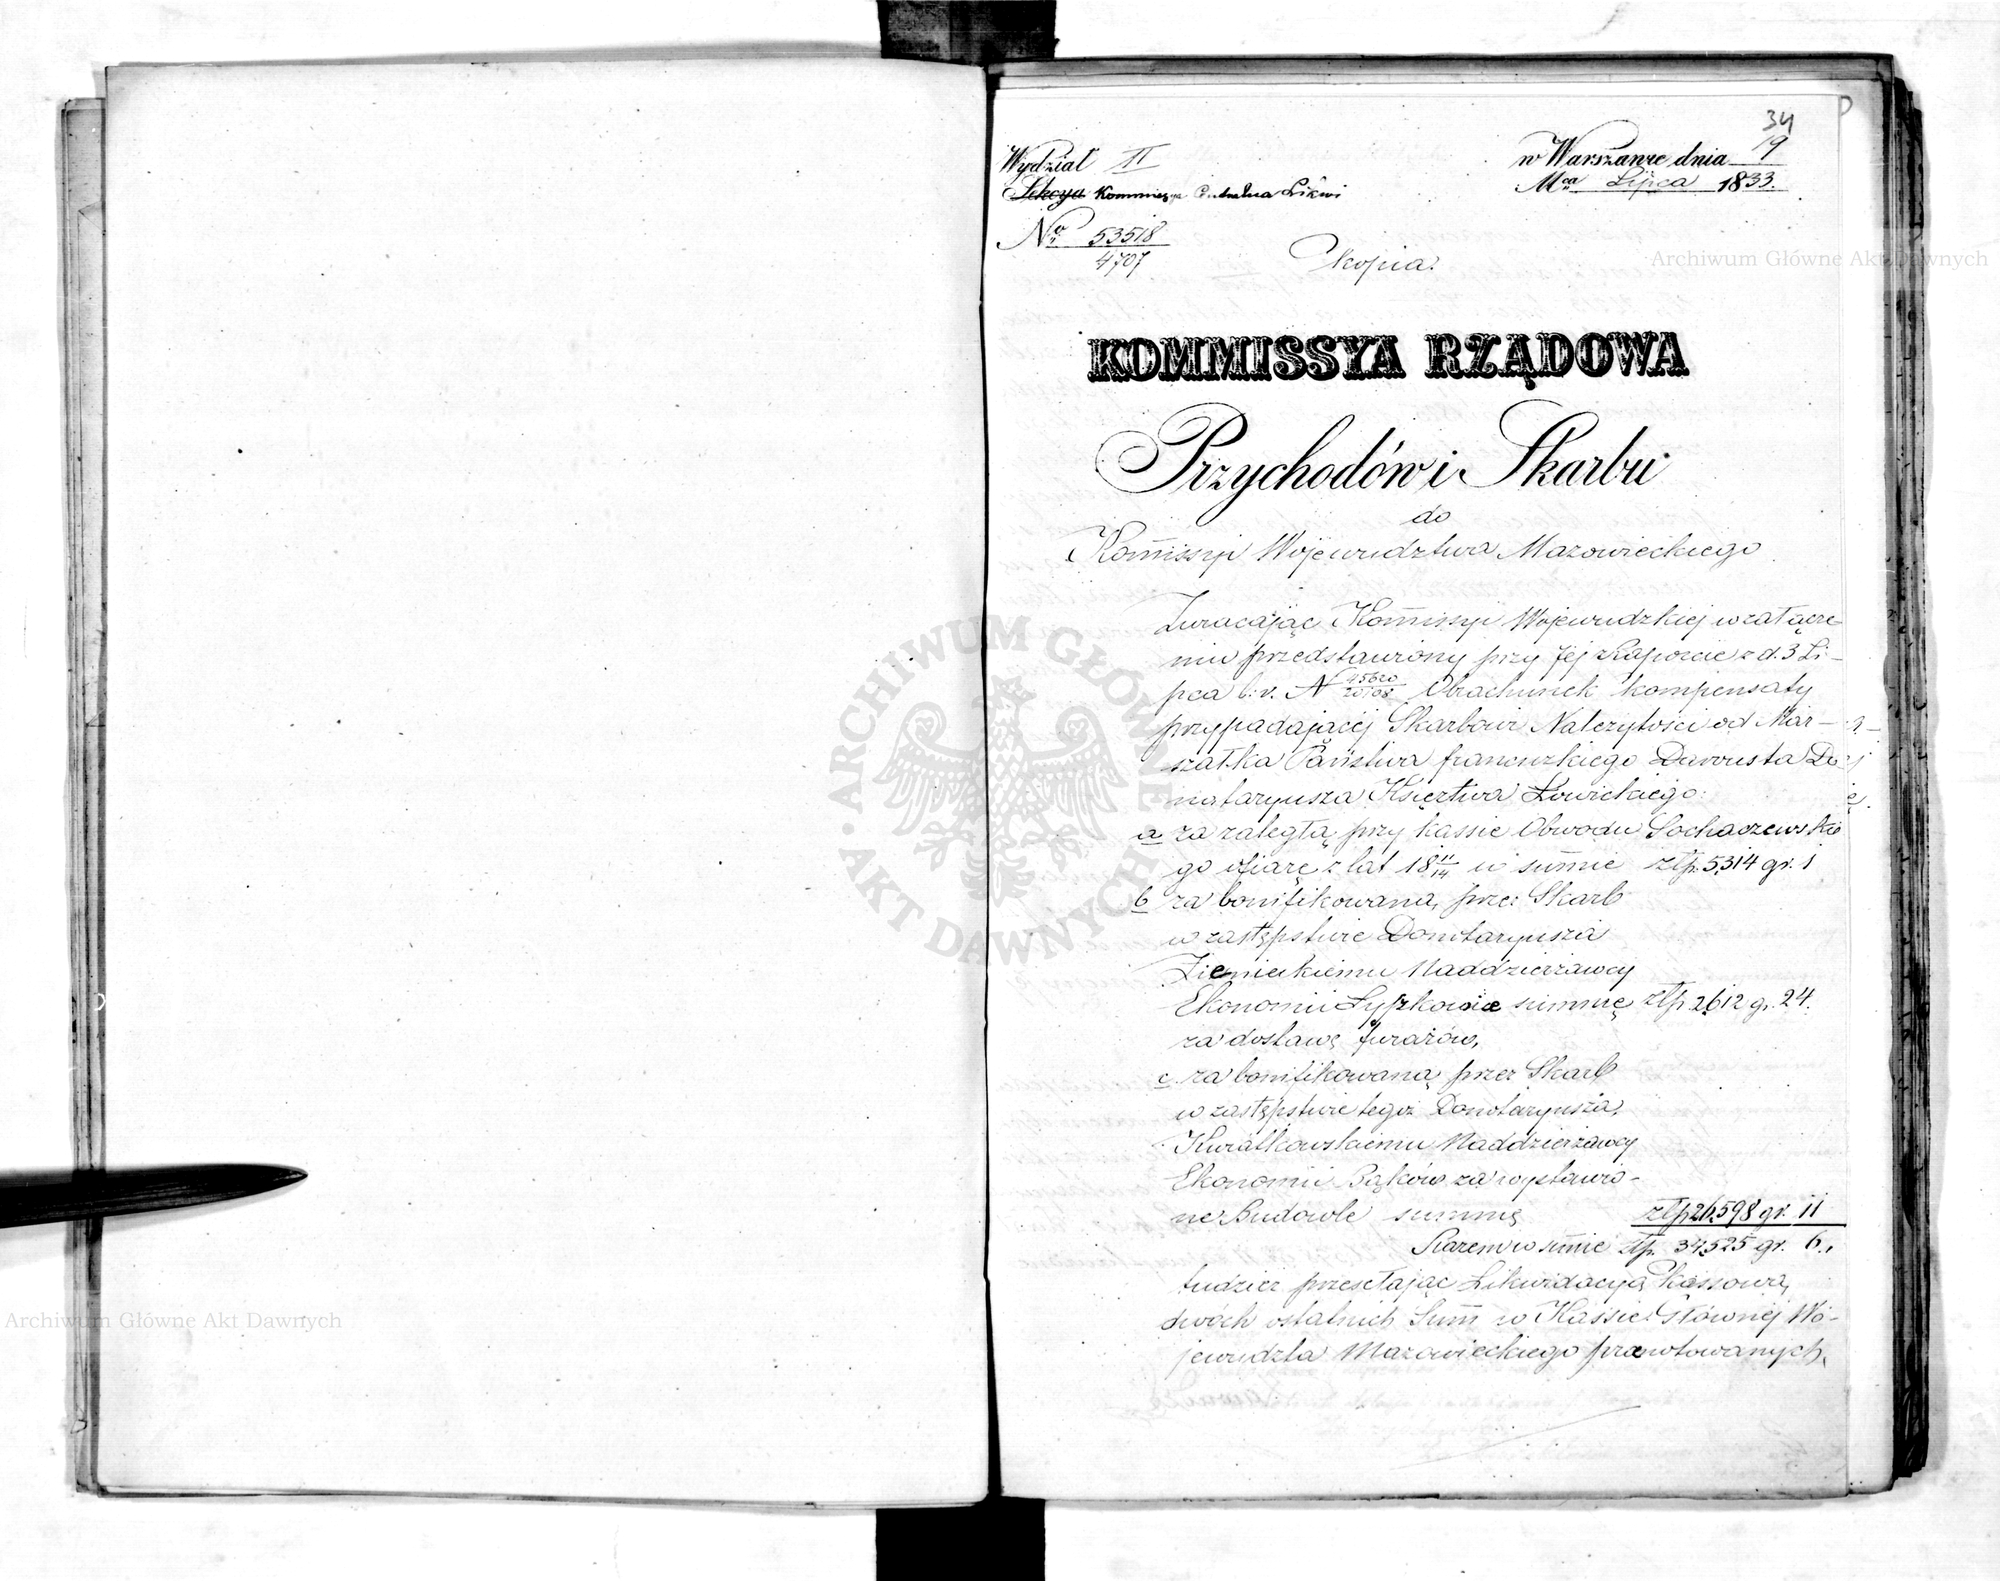 34
Wydział II
w Warszawie dnia 19
Sekcya Kommissya Centralna Likwi
Mca Lipca 1833.
No 53518
4707
Kopia.
KOMMISSYA RZĄDOWA
Przychodów i Skarbu
do
Kom̄issyi Województwa Mazowieckiego
Zwracając Kom̄issyi Wojewódzkiej w załącze-
niu przedstawiony przy Jej Raporcie z d. 3 Li-
pca b. r. N 45620/20108 Obrachunek kompensaty
przypadającéj Skarbowi Należytości od Mar-
szałka Państwa francuzkiego Davousta Do
nataryusza Księztwa Łowickiego:
a za zaległą przy kassie Obwodu Sochaczewskie
go ofiarę z lat 18 11/14 w sum̄ie złp. 5,314 gr. 1
b za bonifikowaną, przez Skarb
w zastępstwie Donotaryusza
Ziemięckiemu Naddzierżawcy
Ekonomii Łyszkowice summę złp 2612 g. 24.
za dostawę furażów,
c. za bonifikowaną przez Skarb
w zastępstwie tegoż Donotaryusza,
Kwiatkowskiemu Naddzierżawcy
Ekonomii Bąków za wystawio-
ne Budowle summę złp 26,598 gr. 11
Razem w sum̄ie złp. 34,525 gr. 6.,
tudzież przesełając Likwidacyą kassową,
dwóch ostatnich Sum̄ w Kassie Głównéj Wo-
jewudztwa Mazowieckiego prenotowanych,
Archiwum Główne Akt Dawnych
Archiwum Główne Akt Dawnych
ARCHIWUM GŁÓWNE
AKT DAWNYCH